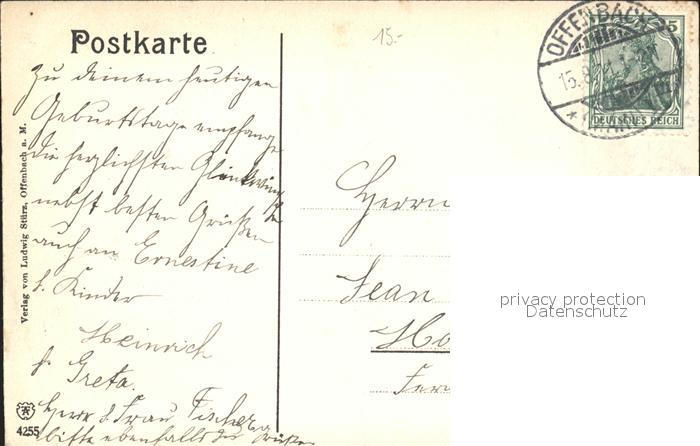 Postkarte
15.-
OFFENBACH
15.8.
(MAIN)
5
DEUTSCHES REICH
Zu deinem heutigen
Geburtstage empfange
die herzlichsten Glückwünsche
nebst besten Grüßen
auch an Ernestine
& Kinder
Heinrich
& Greta.
Herr & Frau Fischer
bitte ebenfalls zu grüßen
Verlag von Ludwig Stürz, Offenbach a. M.
4255
Herrn
Jean
Ho
privacy protection
Datenschutz